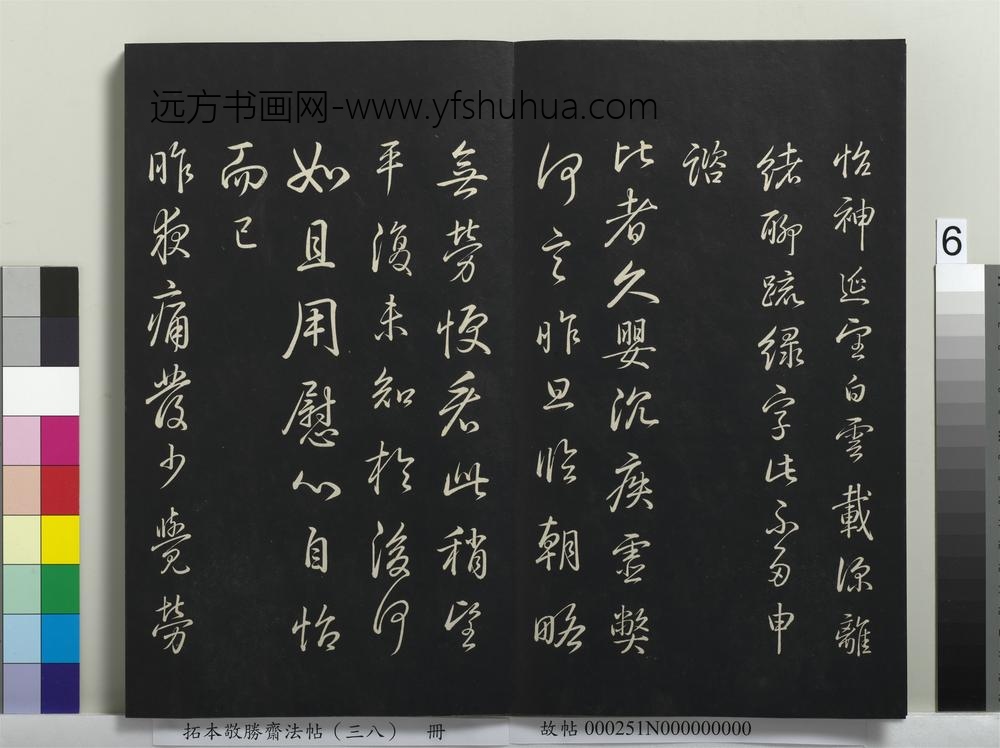 远方书画网-www.yfshuhua.com
怡神延望白雲載深離
緒聊疏綠字此不多申
諮
比者久嬰沉疾虛弊
何言昨旦臨朝略
無勞便看此稍望
平復未知於後何
如且用慰心自怡
而已
昨夜痛發少覺勞
6
拓本敬勝齋法帖（三八） 冊
故帖 000251N000000000